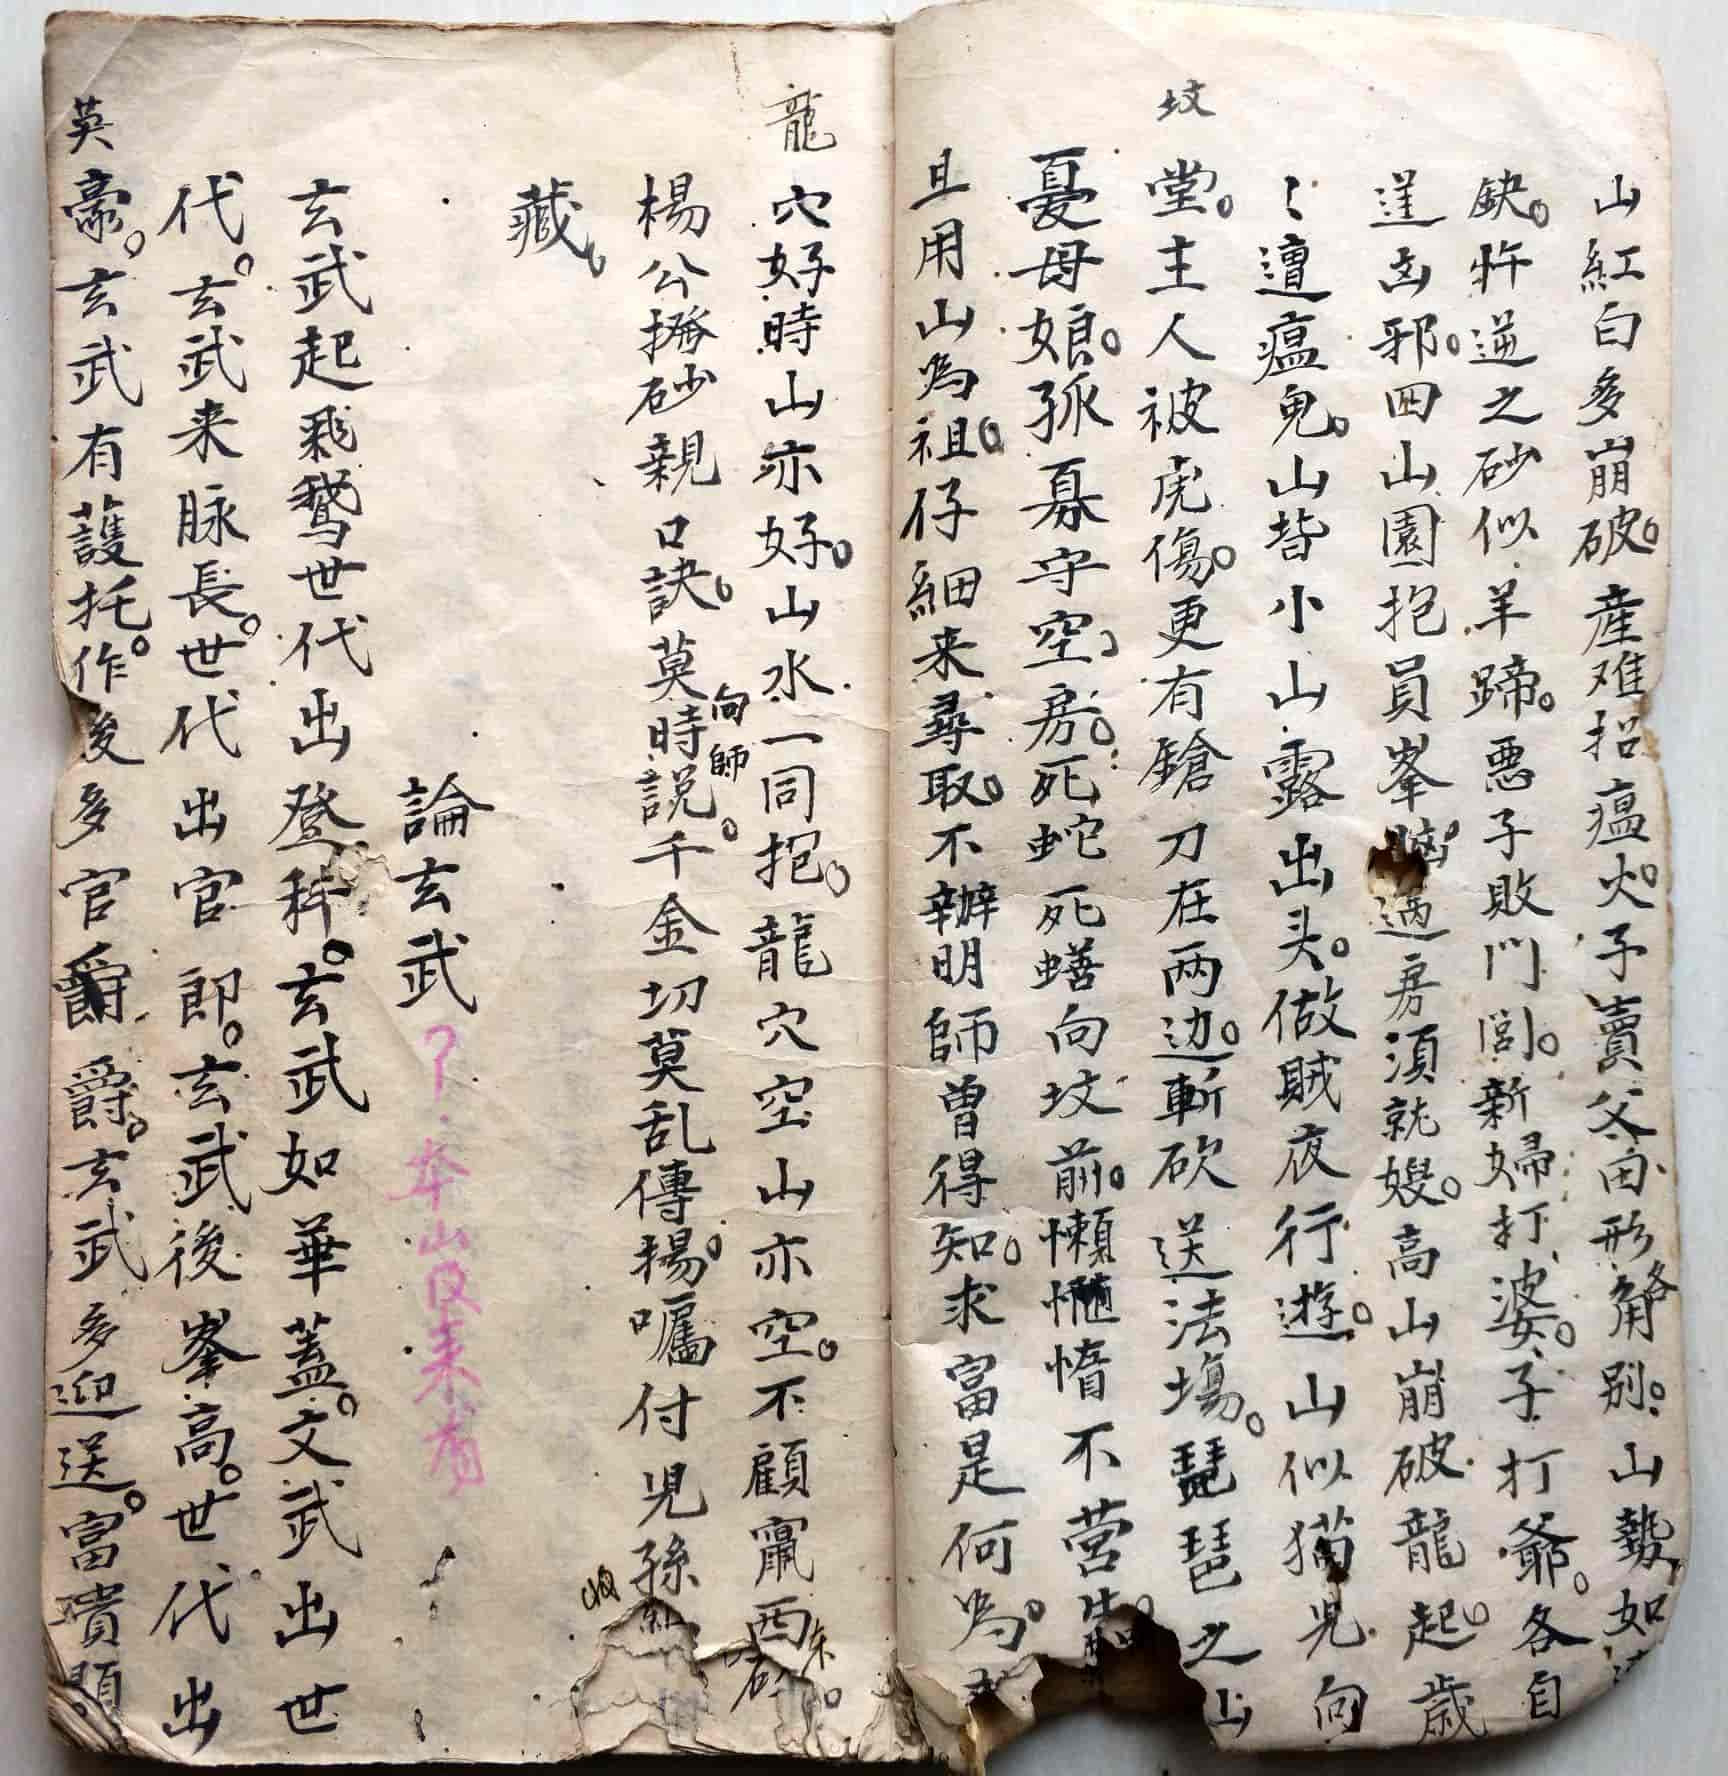 山紅白多崩破。産难招瘟火。子賣父田形角各别。山勢如
鈌。忤逆之砂似羊蹄。惡子敗門閭。新婦打婆。子打爺。各自
逞凶邪。四山園抱員峯𦛨過房須就嫂。高山崩破龍起。歲
〻遭瘟鬼。山皆小山露出头。做賊夜行遊。山似猫児向
坟
堂。主人被虎傷。更有鎗刀在兩边。斬砍送法塲。琵琶之山
憂母娘。孤寡守空房。死蛇死蟮向坟前。懶惰不營生
且用山為祖。仔細来尋取。不辦明師曽得知。求富是何為。
龍穴好時山亦好。山水一同抱。龍穴空山亦空。不顧竄西东砂。
楊公撥砂親口訣。莫時向師説。千金切莫乱傳揚。囑付児孫
藏。
論玄武
玄武起飛鵞世代出登科。玄武如華蓋。文武出世
代。玄武来脉長。世代出官郎。玄武後峯高。世代出
英豪。玄武有護托。作後多官爵。玄武多迎送。富貴顯